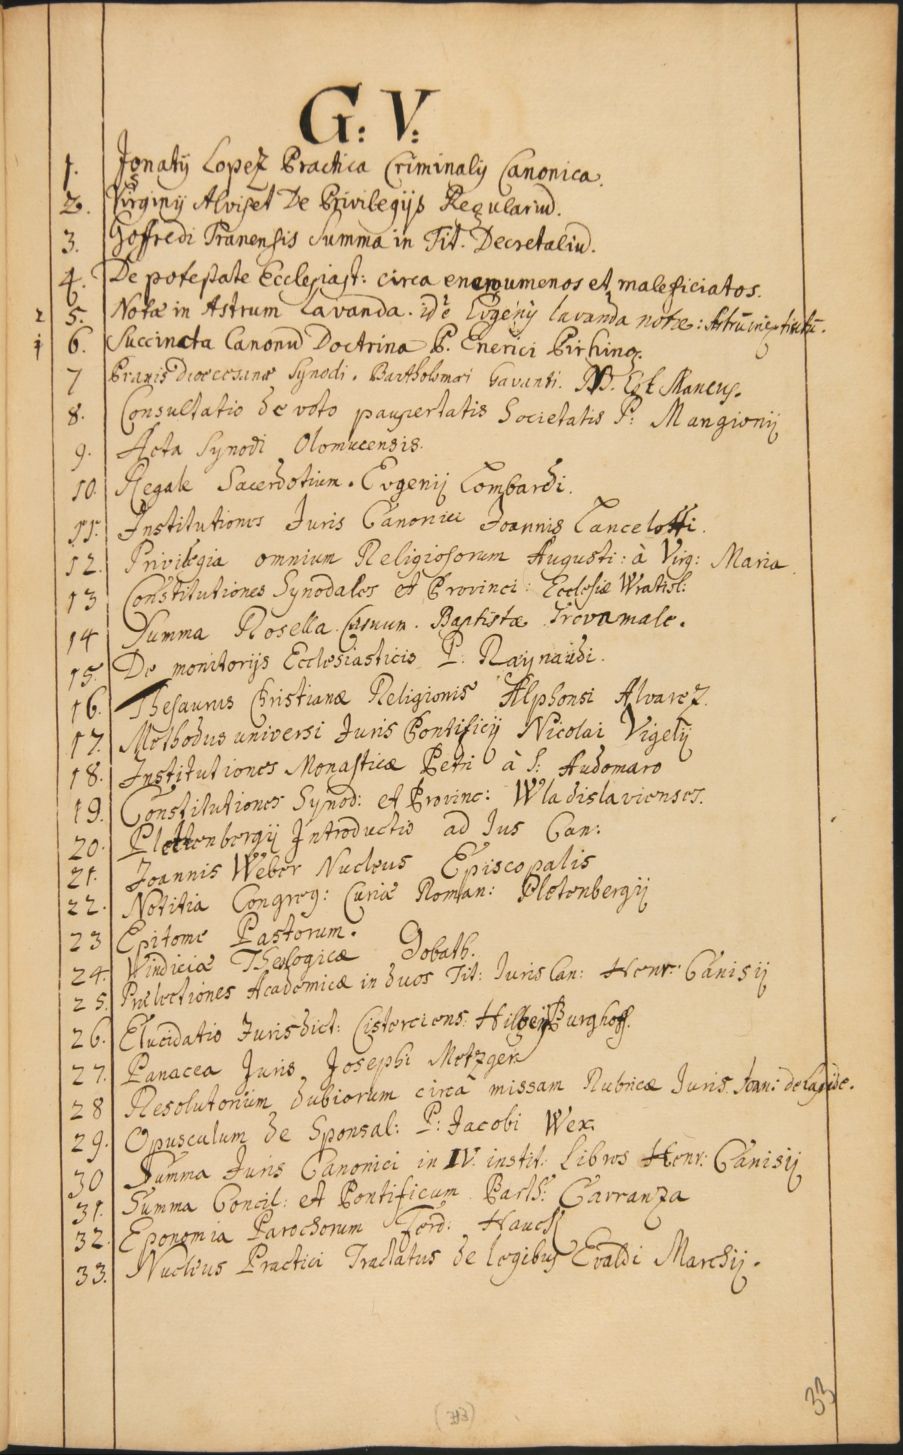 G: V:
1. Ignatij Lopez Practica Criminalis Canonica.
2. Virginij Alviset De Privilegijs Regulariū.
3. Goffredi Tranensis Summa in Tit. Decretaliū.
4. De potestate Ecclesiast: circa energumenos et maleficiatos.
2 5. Notæ in Astrum Lavanda. idē Evgenij lavanda notæ: Astrū ineptinctū.
1 6. Succincta Canonū Doctrina P. Enerici Pirhing.
7 Praxis Diœcesanæ Synodi. Bartholomæi Gavanti. NB. Est Mancus.
8. Consultatio de voto paupertatis Societatis P: Mangionij
9. Acta Synodi Olomucensis.
10. Regale Sacerdotium. Evgenij Lombardi.
11. Institutiones Juris Canonici Joannis Lancelotti.
12. Privilegia omnium Religiosorum Augusti: à Virg: Maria
13 Constitutiones Synodales et Provinci: Ecclesiæ Wratisl.
14 Summa Rosella Casuum. Baptistæ Trovamale.
15. De monitorijs Ecclesiasticis P: Raynaudi.
16. Thesaurus Christianæ Religionis Alphonsi Alvarez.
17. Methodus universi Juris Pontificij Nicolai Vigelij
18. Institutiones Monasticæ Petri à S: Audomaro
19. Constitutiones Synod: et Provinc: Wladislavienses.
20. Plettenbergij Introductio ad Jus Can:
21. Joannis Weber Nucleus Episcopalis
22. Notitia Congreg: Curiæ Roman: Pletenbergij
23 Epitome Pastorum.
24. Vindiciæ Theologicæ Gobatb.
25. Prælectiones Academicæ in duos Tit: Juris Can: Henr: Canisij
26. Elucidatio Jurisdict: Cisterciens: Hilgerj Burghoff.
27. Panacea Juris Josephi Metzger
28 Resolutorium dubiorum circà missam Rubricæ Juris Joan: de Lapide.
29. Opusculum de Sponsal: P: Jacobi Wex
30 Summa Juris Canonici in IV. instit: Libros Henr: Canisij
31. Summa Concil: et Pontificum Barth: Carranza
32. Eponomia Parochorum Ferd: Hauck
33. Nucleus Practici Tractatus de legibus Evaldi Marchij.
33